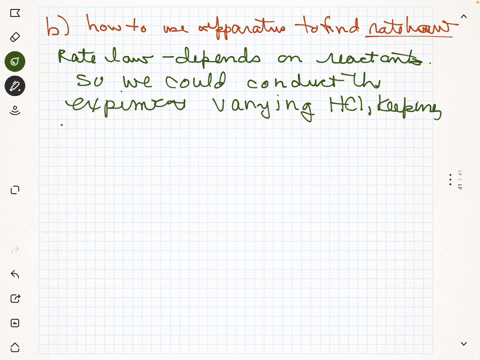 b) how to use apparatus to find rate law
Rate law - depends on reactants.
So we could conduct the
experiment varying HCl, keeping